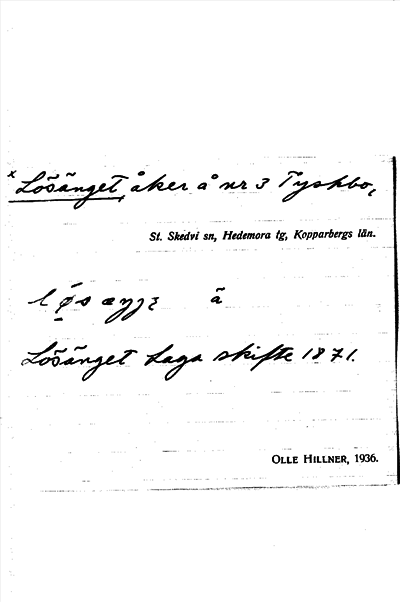 x Lösänget, åker å nr 3 Tyskbo,
St. Skedvi sn, Hedemora tg, Kopparbergs län.
ä
Lösänget Laga skifte 1871.
OLLE HILLNER, 1936.